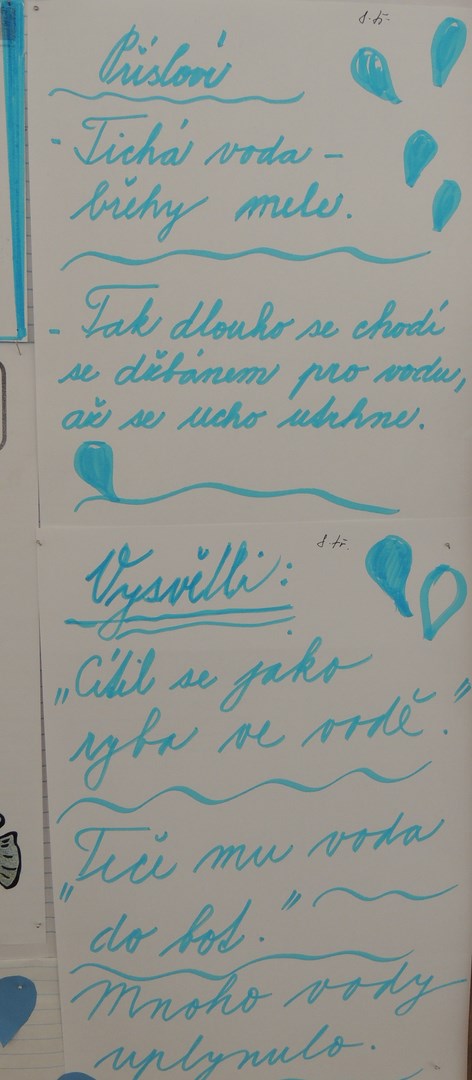 8. tř.
Přísloví
- Tichá voda -
břehy mele.
- Tak dlouho se chodí
se džbánem pro vodu,
až se ucho utrhne.
8. tř.
Vysvětli:
„Cítil se jako
ryba ve vodě."
„Teče mu voda
do bot."
Mnoho vody
uplynulo.